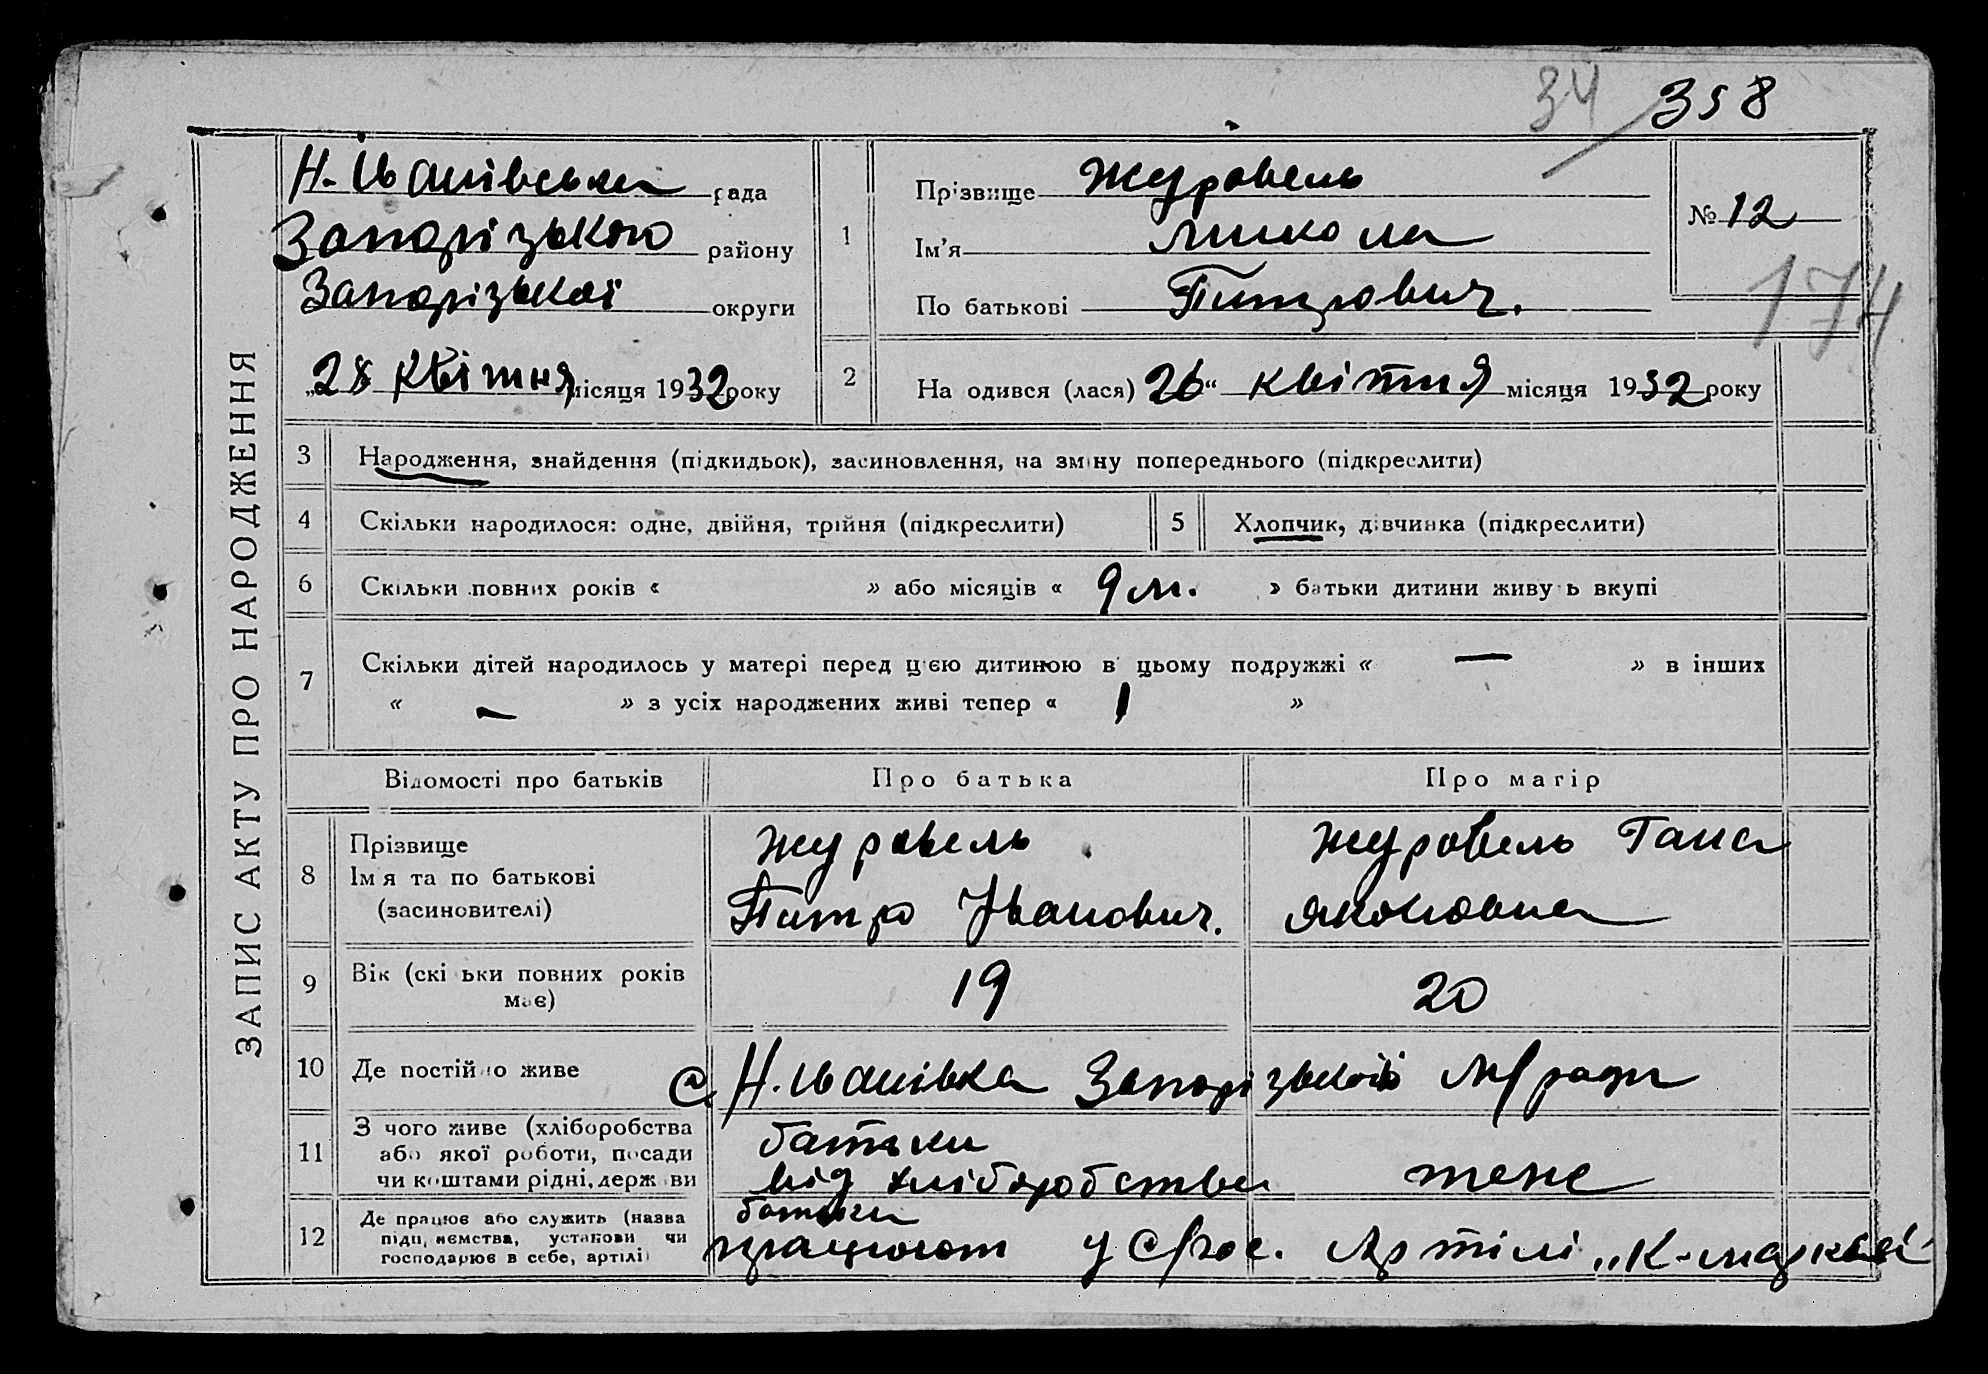 34 / 358
ЗАПИС АКТУ ПРО НАРОДЖЕННЯ
Н-Іванівська рада
Запорізького району
Запорізької округи
„28 квітня місяця 1932 року
1
Прізвище Журовель
Ім'я Микола
По батькові Питрович.
№ 12
174
2
На одився (лася) 26“ квітня місяця 1932 року
3 Народження, знайдення (підкидьок), засиновлення, на зміну попереднього (підкреслити)
4 Скільки народилося: одне, двійня, трійня (підкреслити)
5 Хлопчик, дівчинка (підкреслити)
6 Скільки повних років « » або місяців « 9 м. » батьки дитини живу ь вкупі
7 Скільки дітей народилось у матері перед цією дитиною в цьому подружжі « — » в інших
« — » з усіх народжених живі тепер « 1 »
Відомості про батьків Про батька Про матір
8 Прізвище
Ім'я та по батькові
(засиновителі)
Журовель
Питро Іванович.
Журовель Гана
Яковловна
9 Вік (скі ьки повних років
має)
19
20
10 Де постійно живе
с. Н.Іванівка Запорізької м/ради
11 З чого живе (хліборобства
або якої роботи, посади
чи коштами рідні, держ ви
батьки
від хліборобства
теж
12 Де працює або служить (назва
підп, иємства, установи чи
господарює в себе, артілі)
батьки
працюют у с/гос. Артілі „К-маркса"